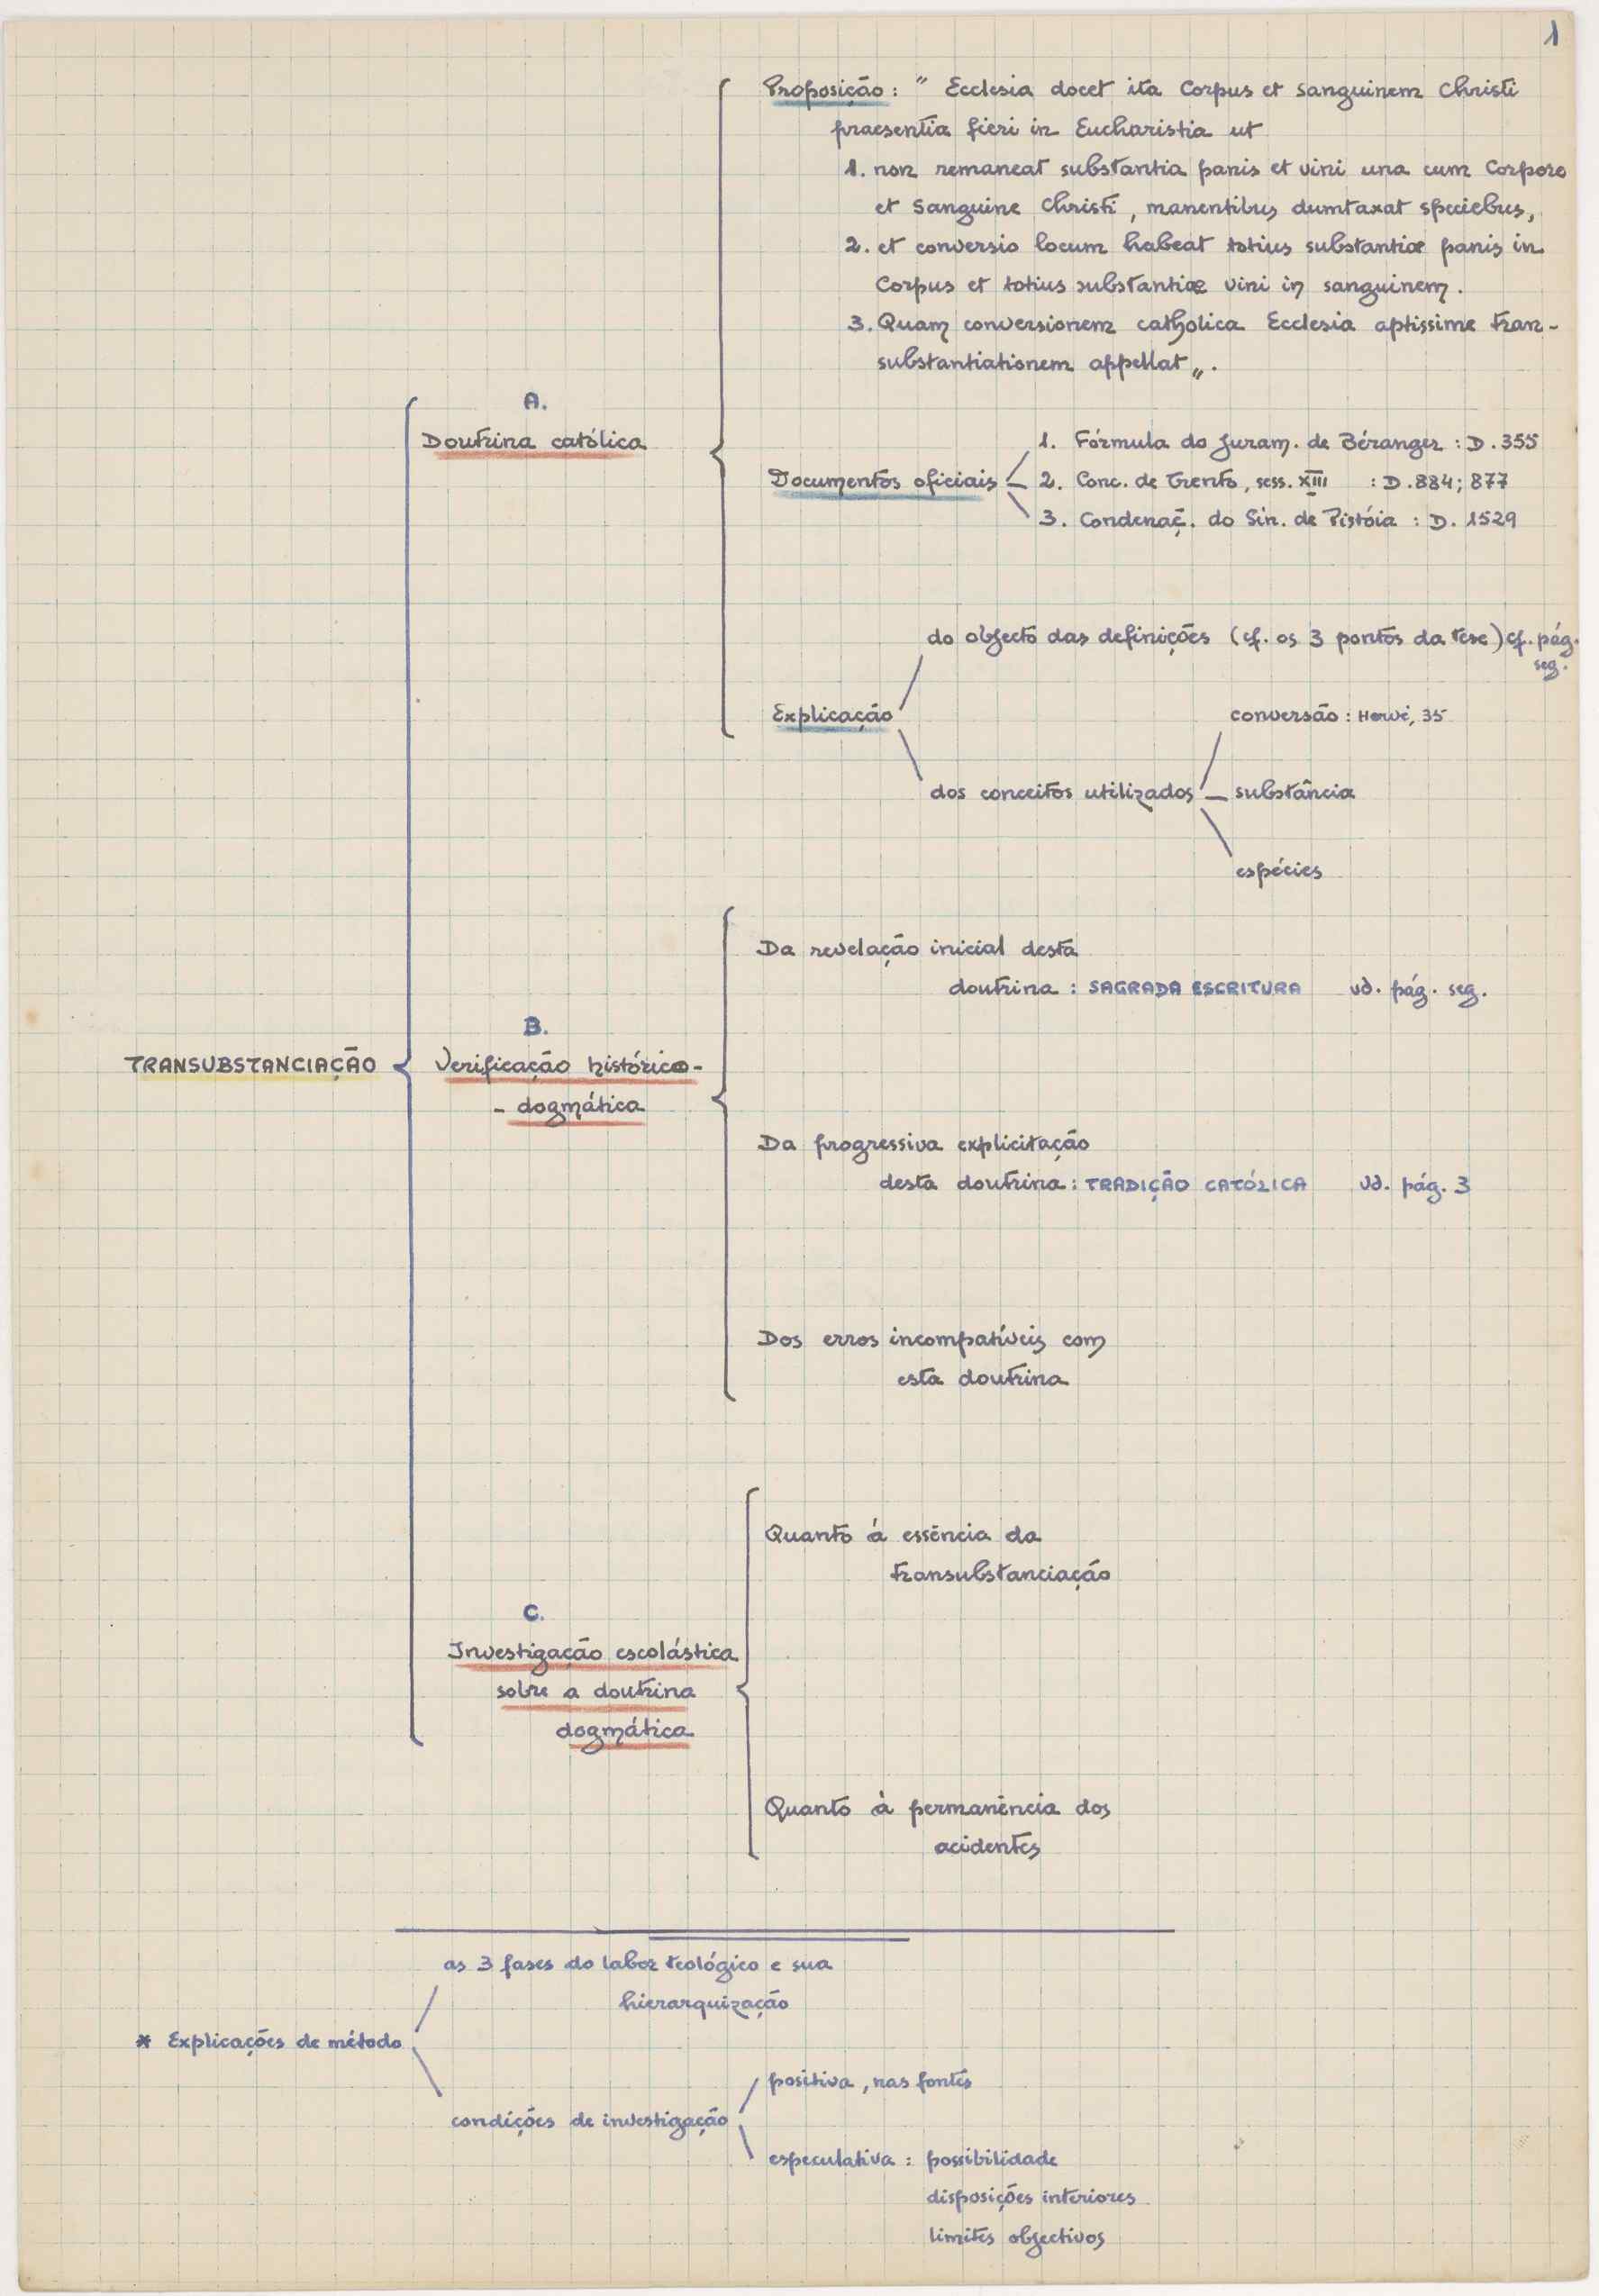 1
Proposição: " Ecclesia docet ita Corpus et Sanguinem Christi
praesentia fieri in Eucharistia ut
1. non remaneat substantia panis et vini una cum Corpore
et Sanguine Christi, manentibus dumtaxat speciebus,
2. et conversio locum habeat totius substantiæ panis in
Corpus et totius substantiæ vini in sanguinem.
3. Quam conversionem catholica Ecclesia aptissime tran-
substantiationem appellat".
A.
Doutrina católica
Documentos oficiais
1. Fórmula do Juram. de Béranger : D. 355
2. Conc. de Trento, sess. XIII : D. 884; 877
3. Condenaç. do Sin. de Pistóia : D. 1529
do objecto das definições (cf. os 3 pontos da tese) cf. pág.
seg.
Explicação
conversão : Hervé, 35
dos conceitos utilizados
substância
espécies
Da revelação inicial desta
doutrina : SAGRADA ESCRITURA vd. pág. seg.
B.
TRANSUBSTANCIAÇÃO
Verificação histórico-
- dogmática
Da progressiva explicitação
desta doutrina : TRADIÇÃO CATÓLICA vd. pág. 3
Dos erros incompatíveis com
esta doutrina
Quanto á essência da
transubstanciação
C.
Investigação escolástica
sobre a doutrina
dogmática
Quanto à permanência dos
acidentes
as 3 fases do labor teológico e sua
hierarquização
* Explicações de método
positiva, nas fontes
condições de investigação
especulativa : possibilidade
disposições interiores
limites objectivos